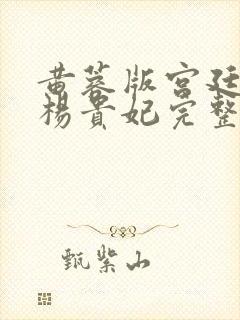 黄蓉版宫廷
杨贵妃完整
甄柴山